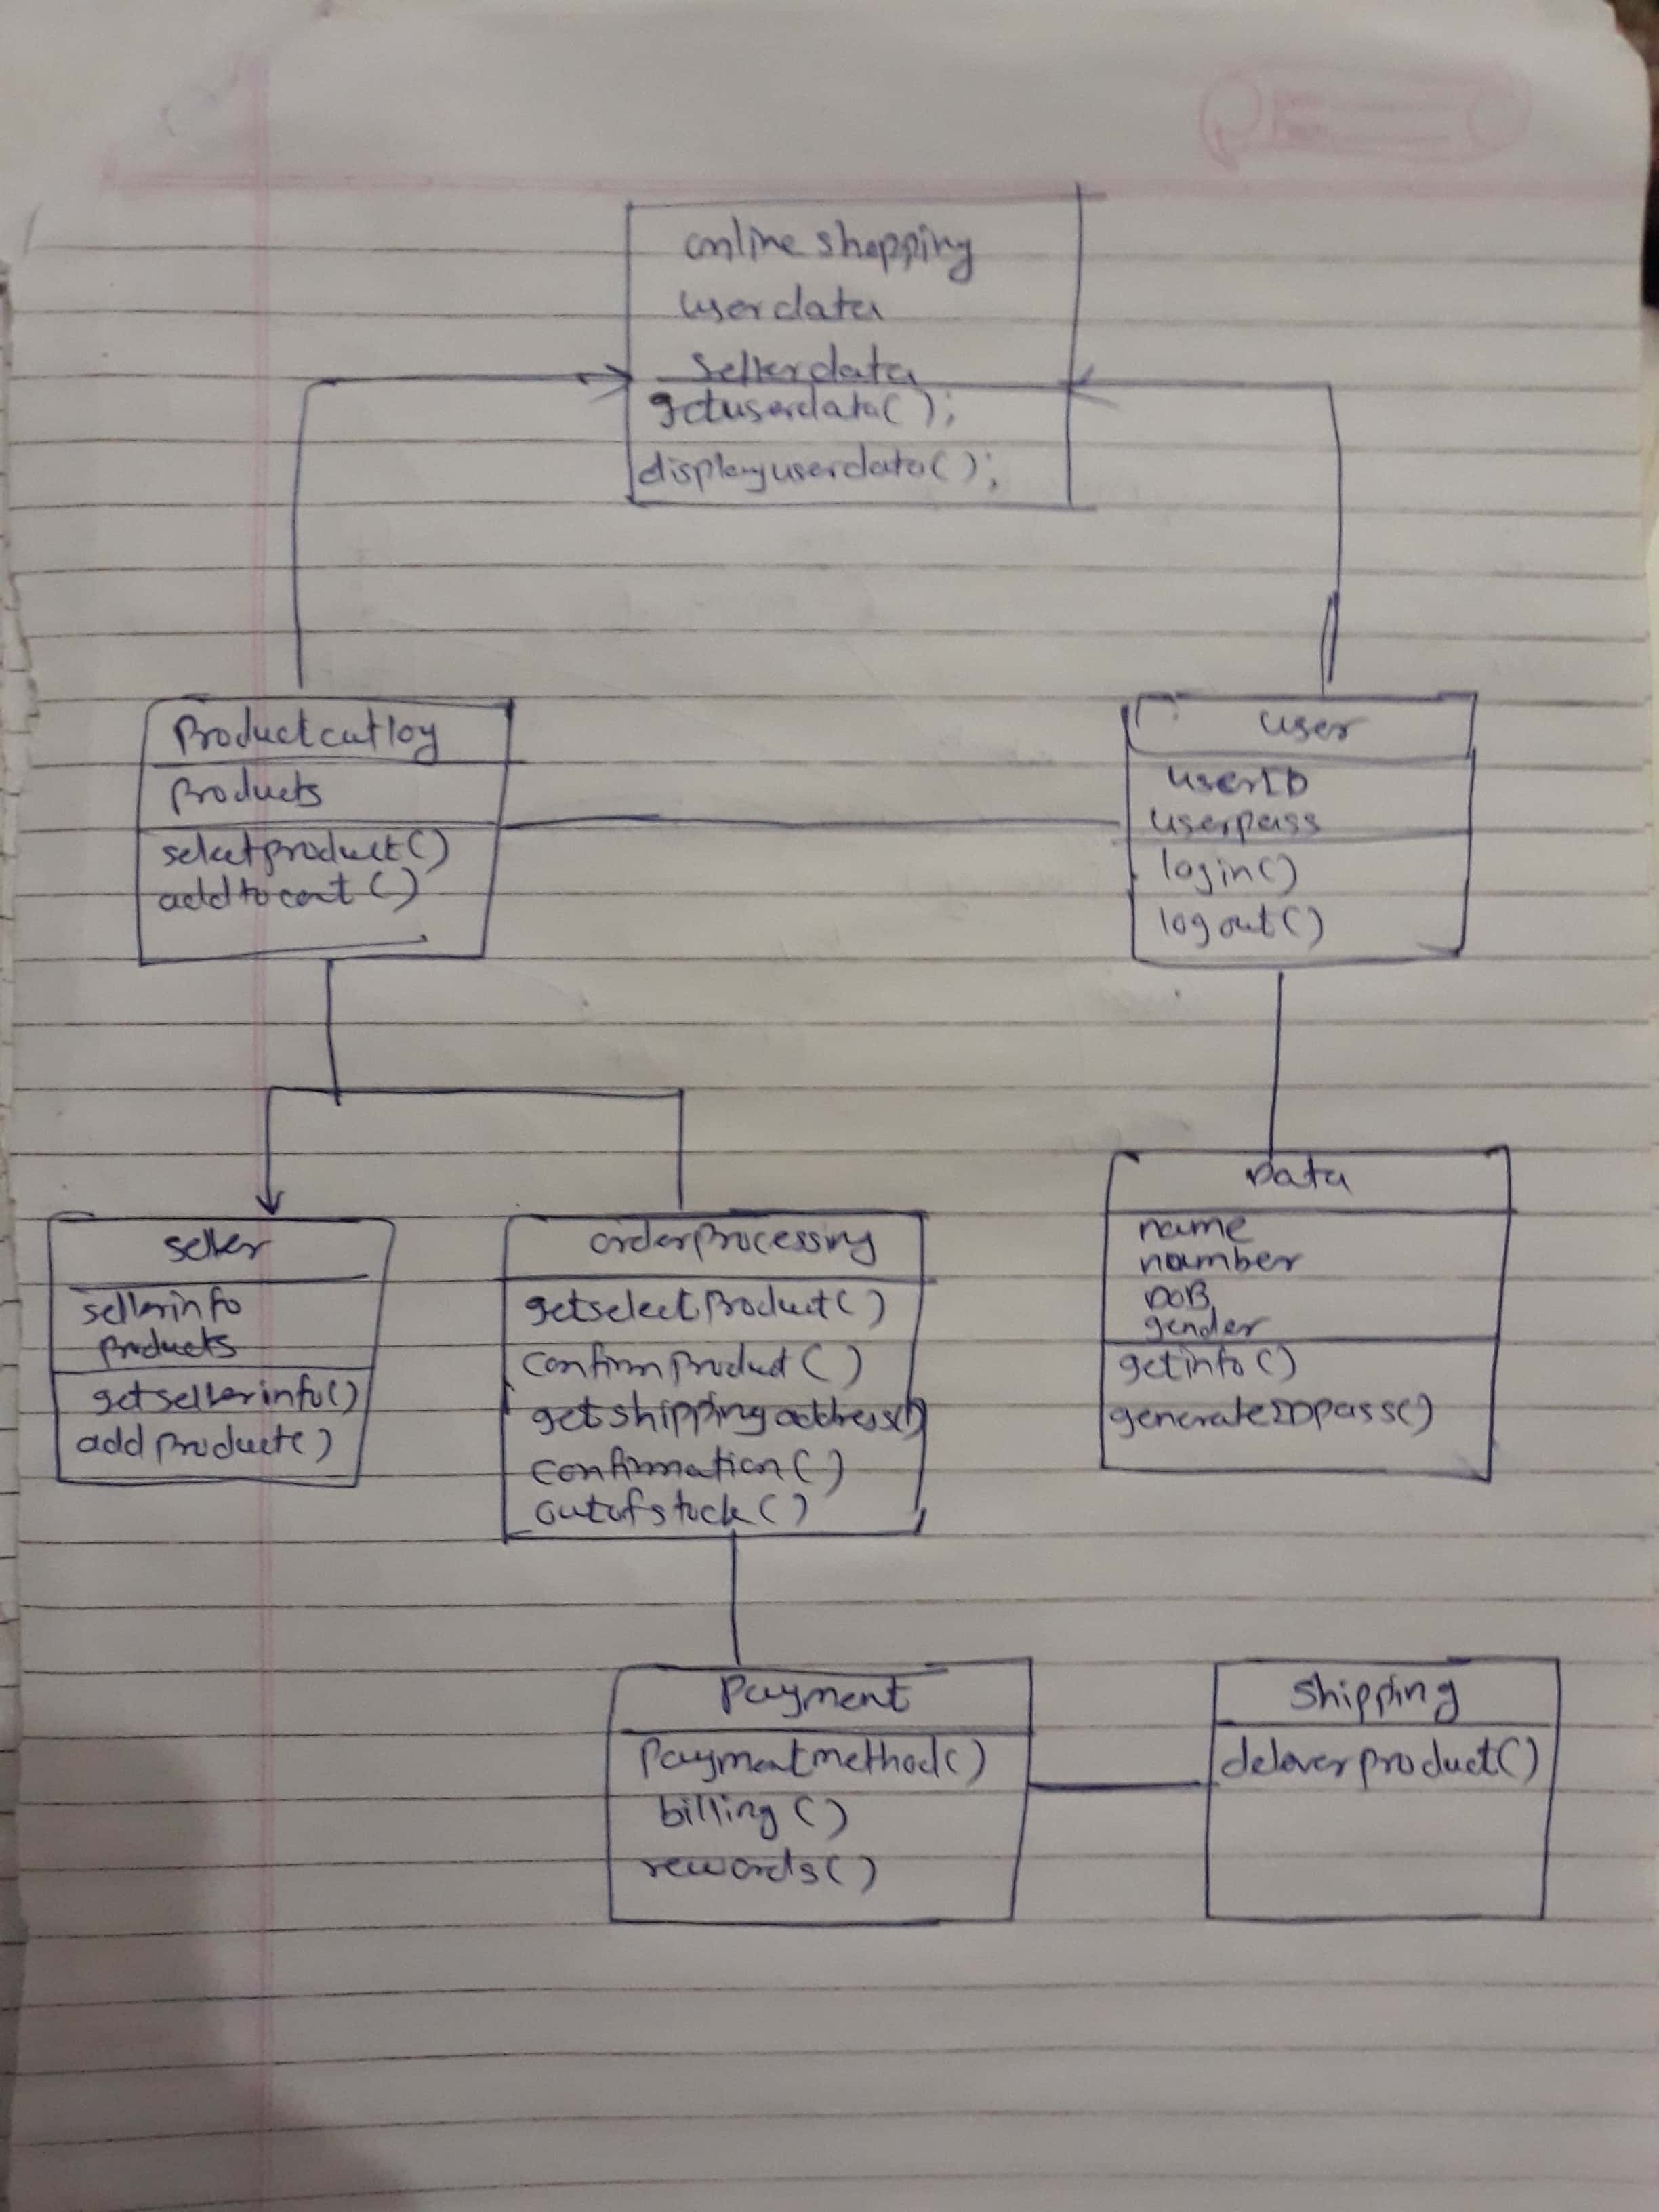 online shopping
userdata
Sellerdata
getuserdata();
displayuserdata();
Productcatlog
Products
selectproduct()
addtocart()
user
userID
userpass
login()
logout()
seller
sellerinfo
products
getsellerinfo()
addproduct()
orderprocessing
getselectproduct()
confirmproduct()
getshippingaddress()
confirmation()
outofstock()
Data
name
number
DOB
gender
getinfo()
generateIDpass()
Payment
Paymentmethod()
billing()
rewards()
Shipping
deloverproduct()